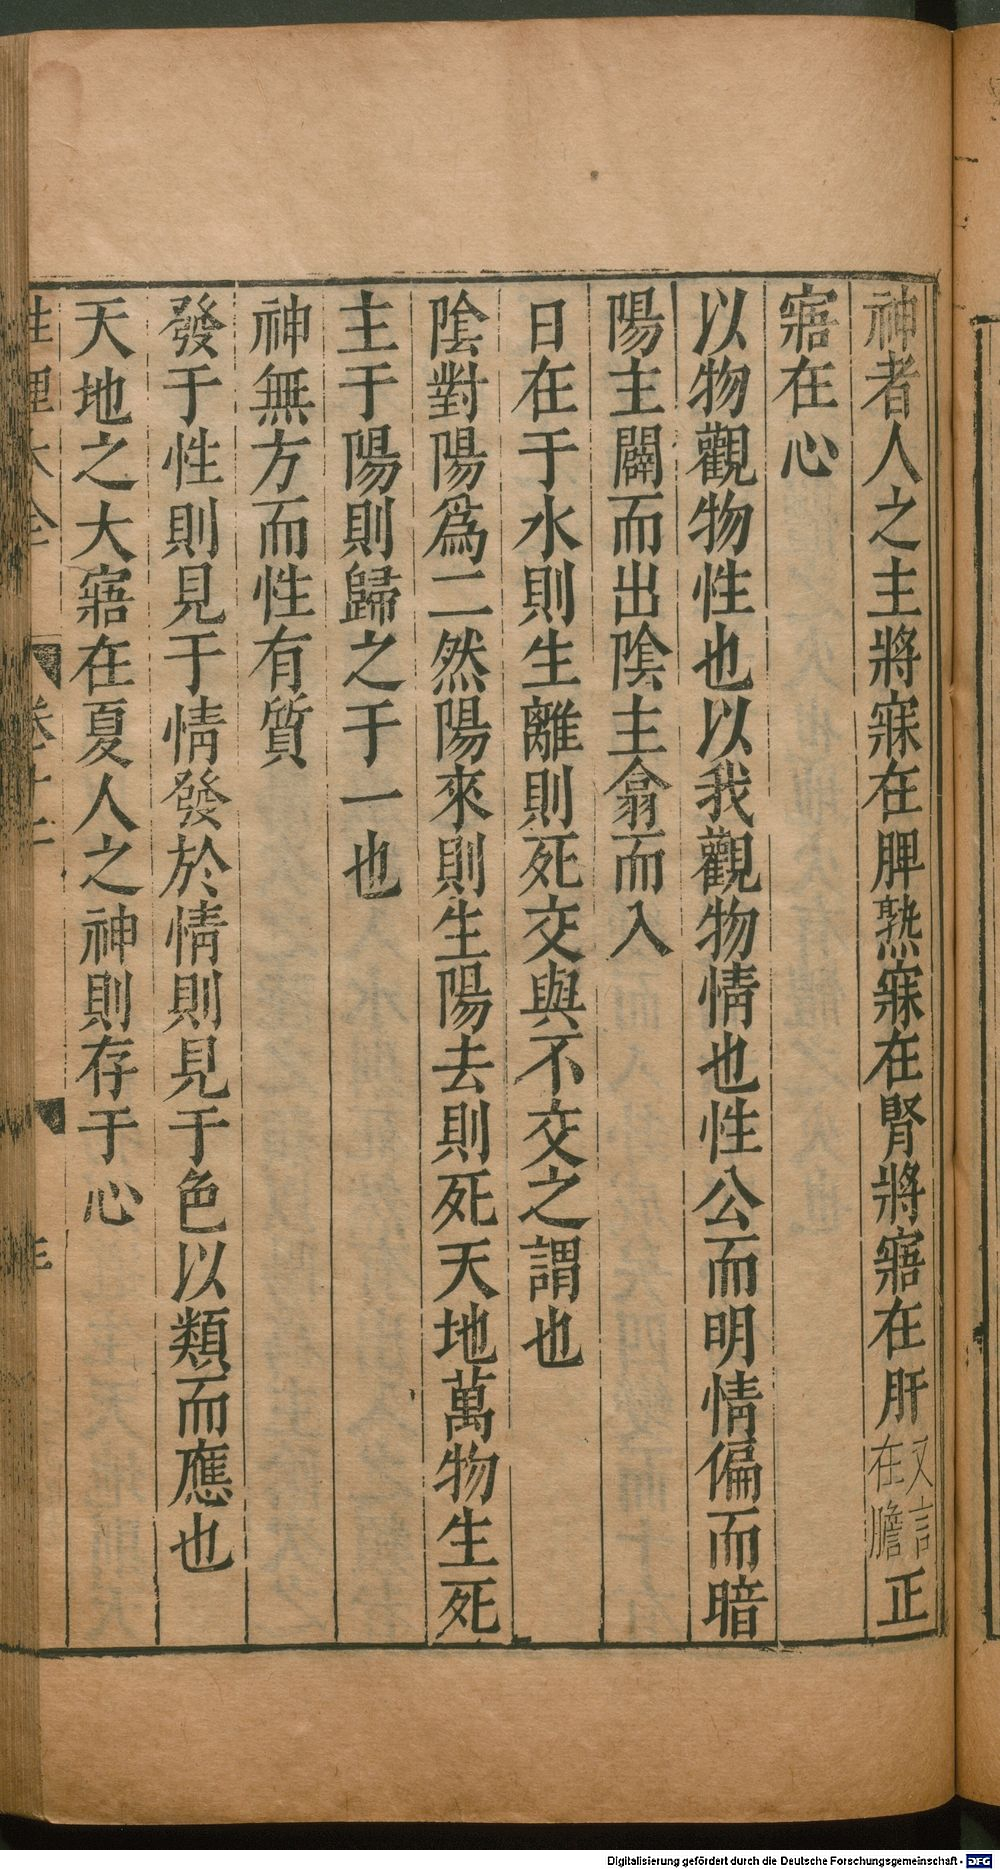 神者人之主將寐在脾熟寐在腎將寤在肝又言在膽正
寤在心
以物觀物性也以我觀物情也性公而明情偏而暗
陽主闢而出陰主翕而入
日在于水則生離則死交與不交之謂也
陰對陽爲二然陽來則生陽去則死天地萬物生死
主于陽則歸之于一也
神無方而性有質
發于性則見于情發於情則見于色以類而應也
天地之大寤在夏人之神則存于心
性理大全 卷十二
Digitalisierung gefördert durch die Deutsche Forschungsgemeinschaft - DFG